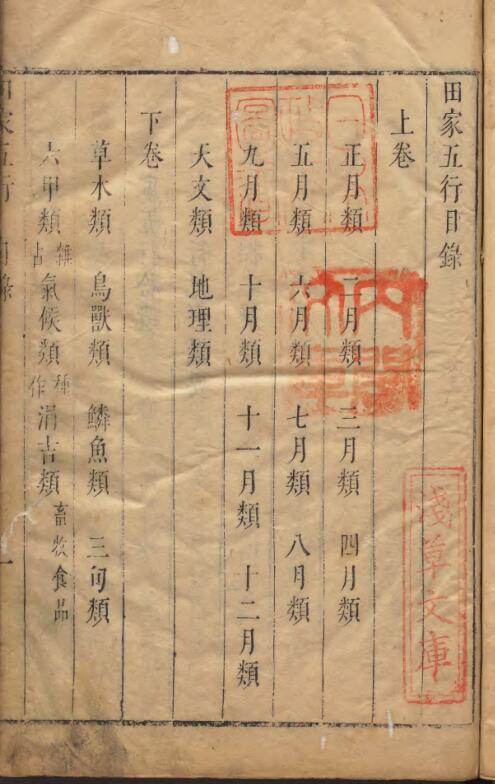 田家五行目錄
上卷
正月類 二月類 三月類 四月類
五月類 六月類 七月類 八月類
九月類 十月類 十一月類 十二月類
天文類 地理類
下卷
草木類 鳥獸類 鱗魚類 三旬類
六甲類 雜占 氣候類 種作 涓吉類 畜牧食品
田家五行 目錄 一
淺草文庫